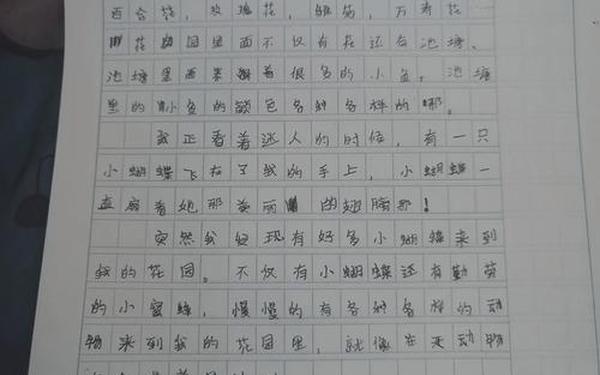 百合花，玫瑰花，郁筠，万寿花
花园里面不仅有花还有池塘、
池塘里面来游着很多的小鱼，池塘
里的小鱼的颜色各种各样的哪。
我正看着迷人的时候，有一只
小蝴蝶飞在了我的手上，小蝴蝶一
直扇着她那美丽的翅膀那！
突然我发现有好多小蝴蝶来到
我的花园。不仅有小蝴蝶还有勤劳
的小蜜蜂，慢慢的有各种各样的动
物来到我的花园里，就像在开动物